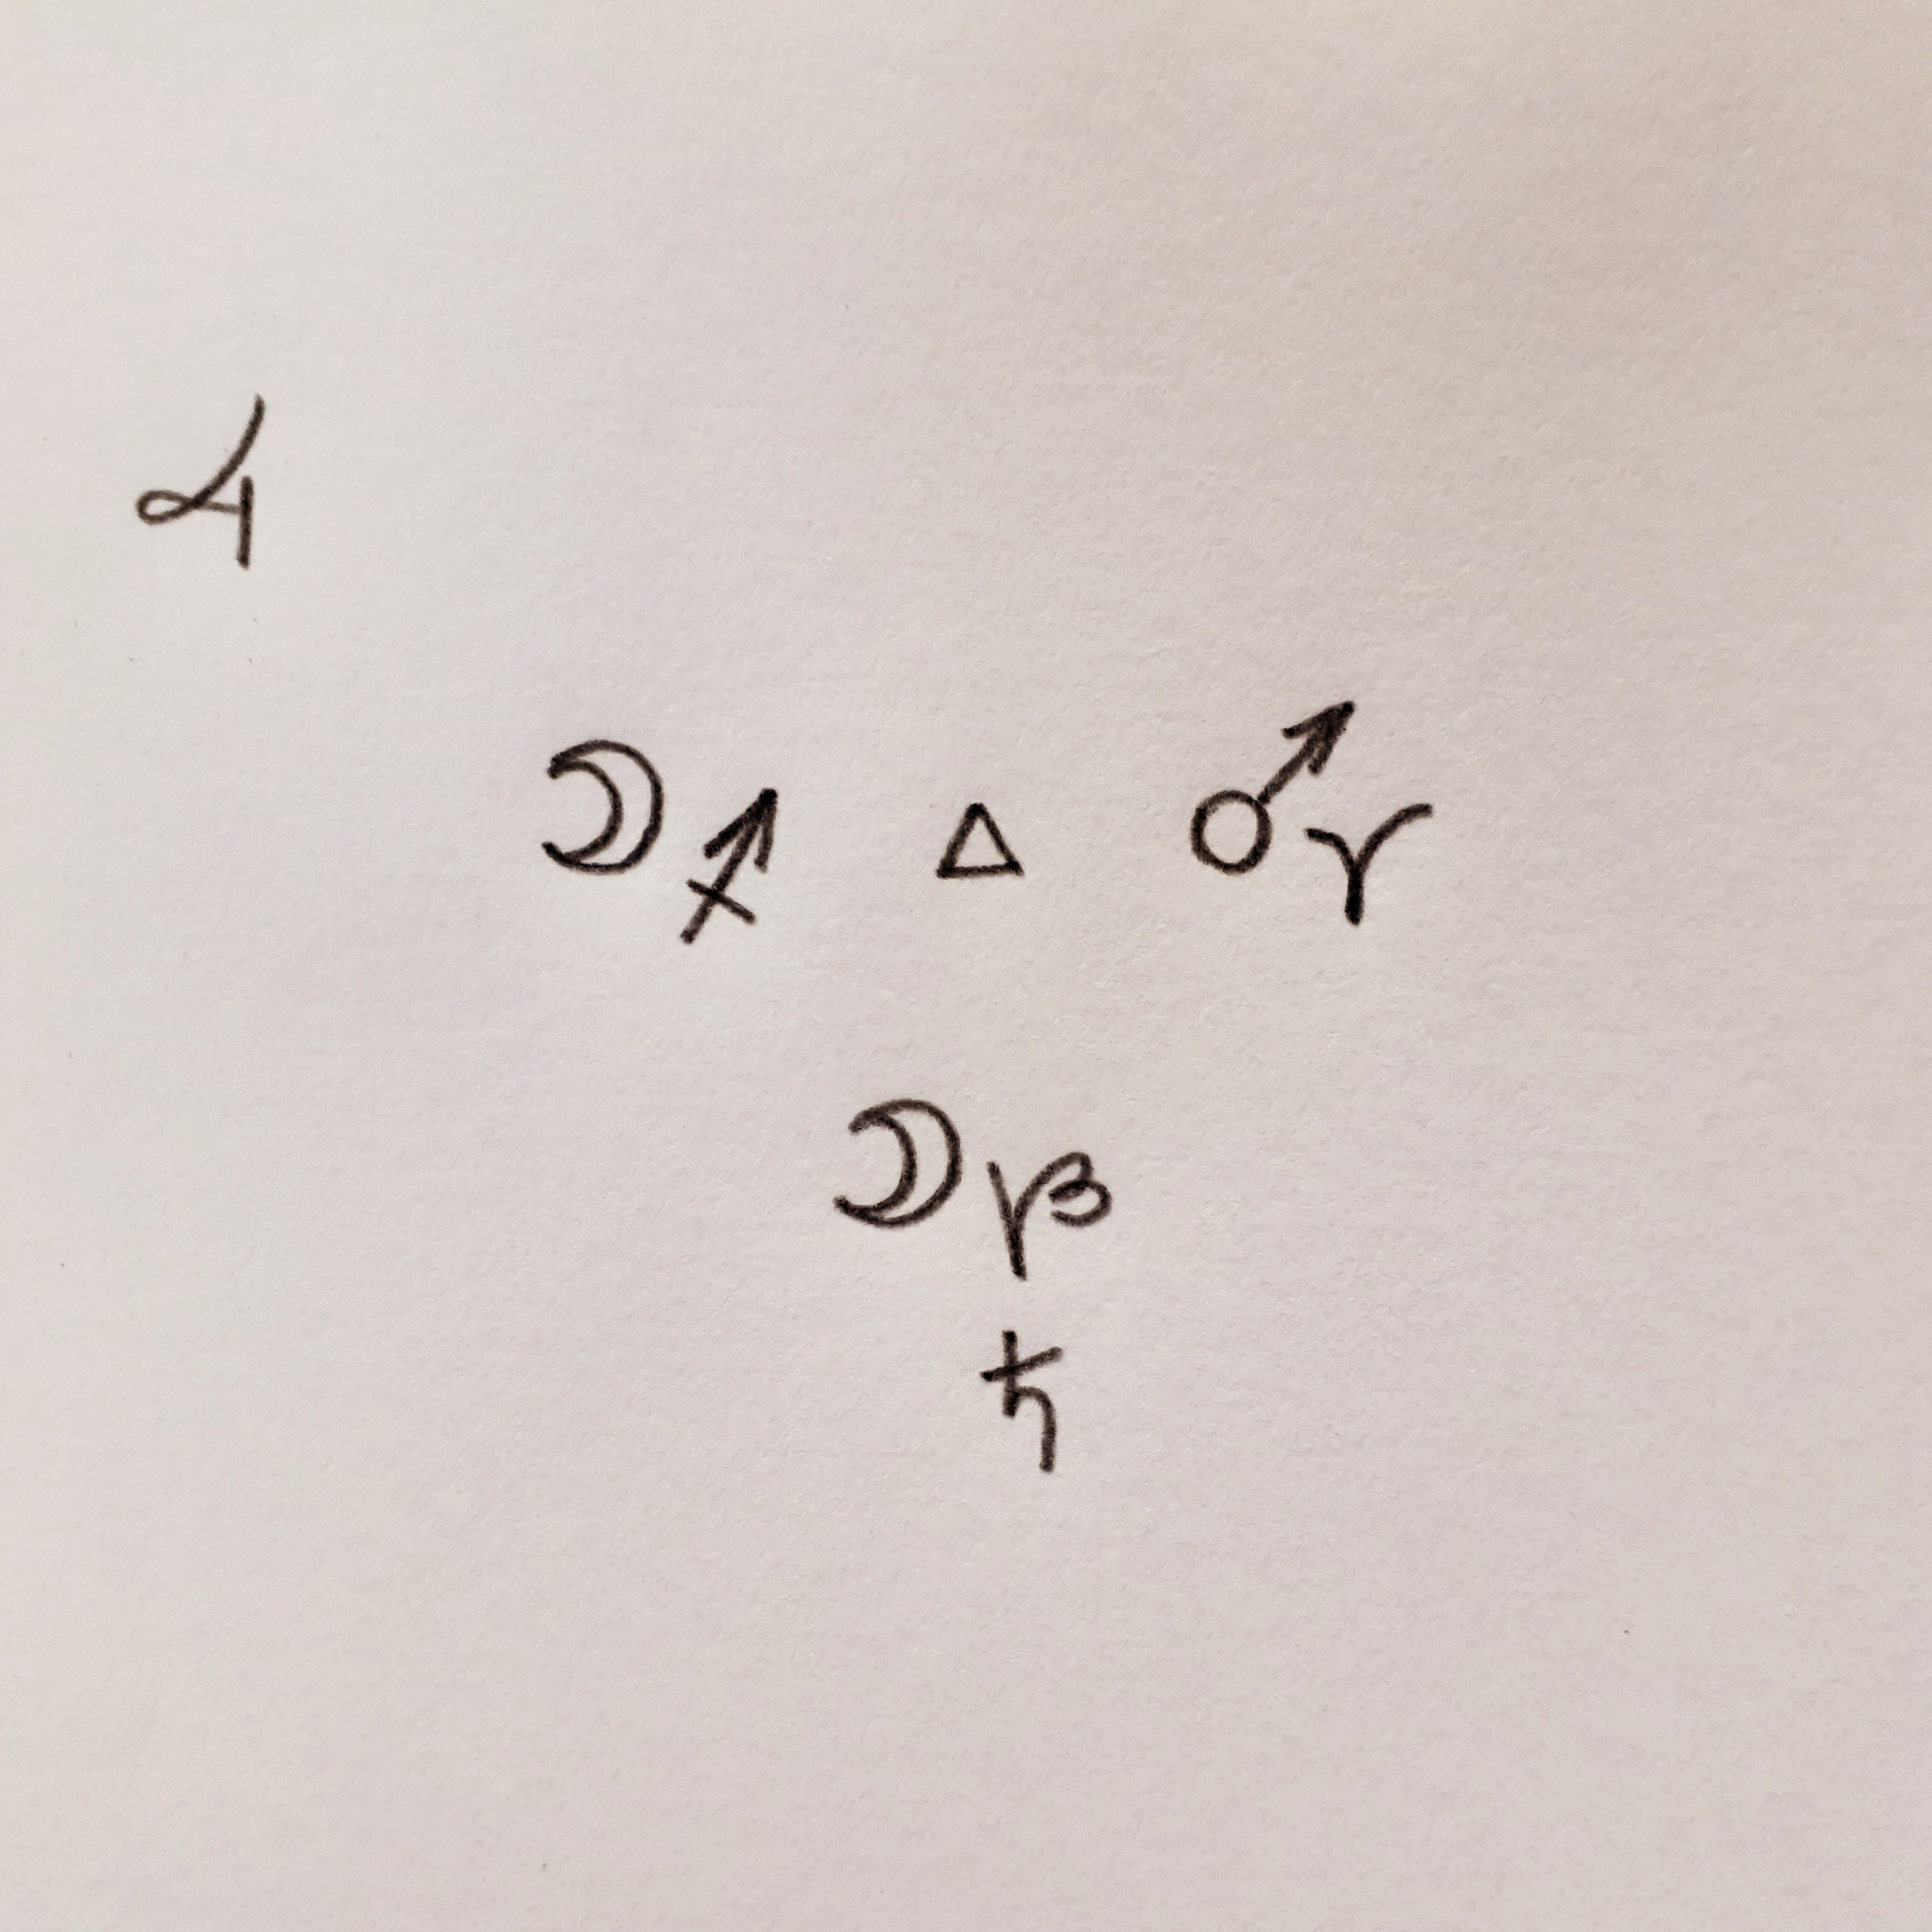 ♃
☽♐ △ ♂♈
☽♑
♄